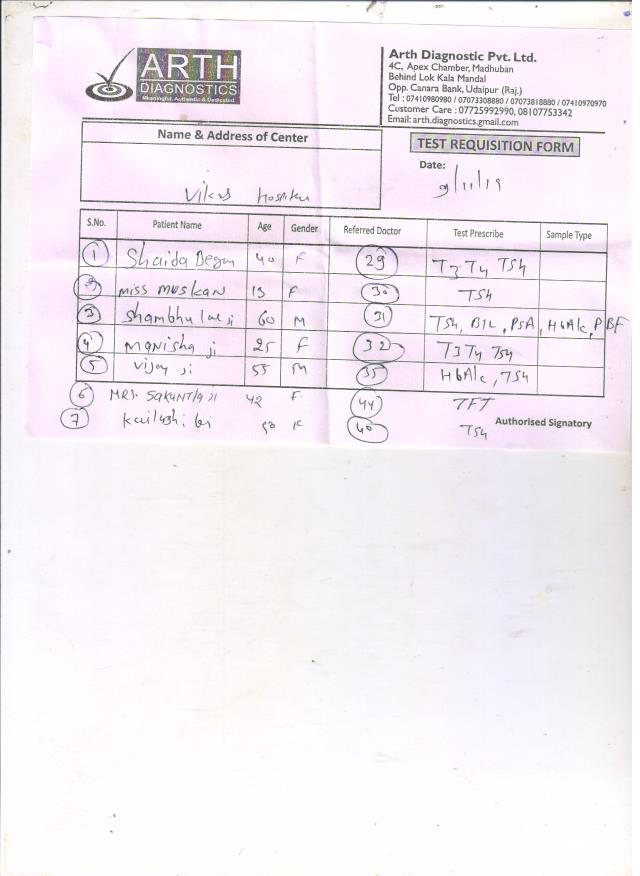 ARTH
DIAGNOSTICS
Meaningful, Authentic & Dedicated.
Arth Diagnostic Pvt. Ltd.
4C, Apex Chamber, Madhuban
Behind Lok Kala Mandal
Opp. Canara Bank, Udaipur (Raj.)
Tel : 07410980980 / 07073308880 / 07073818880 / 07410970970
Customer Care : 07725992990, 08107753342
Email: arth.diagnostics.gmail.com
Name & Address of Center
Vikas Hospital
TEST REQUISITION FORM
Date: 9/11/19
S.No. Patient Name Age Gender Referred Doctor Test Prescribe Sample Type
1 Shaida Begum 40 F 29 T3 T4 TSH
2 miss muskan 13 F 30 TSH
3 Shambhu lal ji 60 M 31 TSH, BIL, PSA, HbA1c, PBF
4 manisha ji 25 F 32 T3 T4 TSH
5 vijay ji 55 M 35 HbA1c, TSH
6 MRS. SAKUNTLA JI 42 F 44 TFT
7 Kailashi bai 50 40 TSH
Authorised Signatory